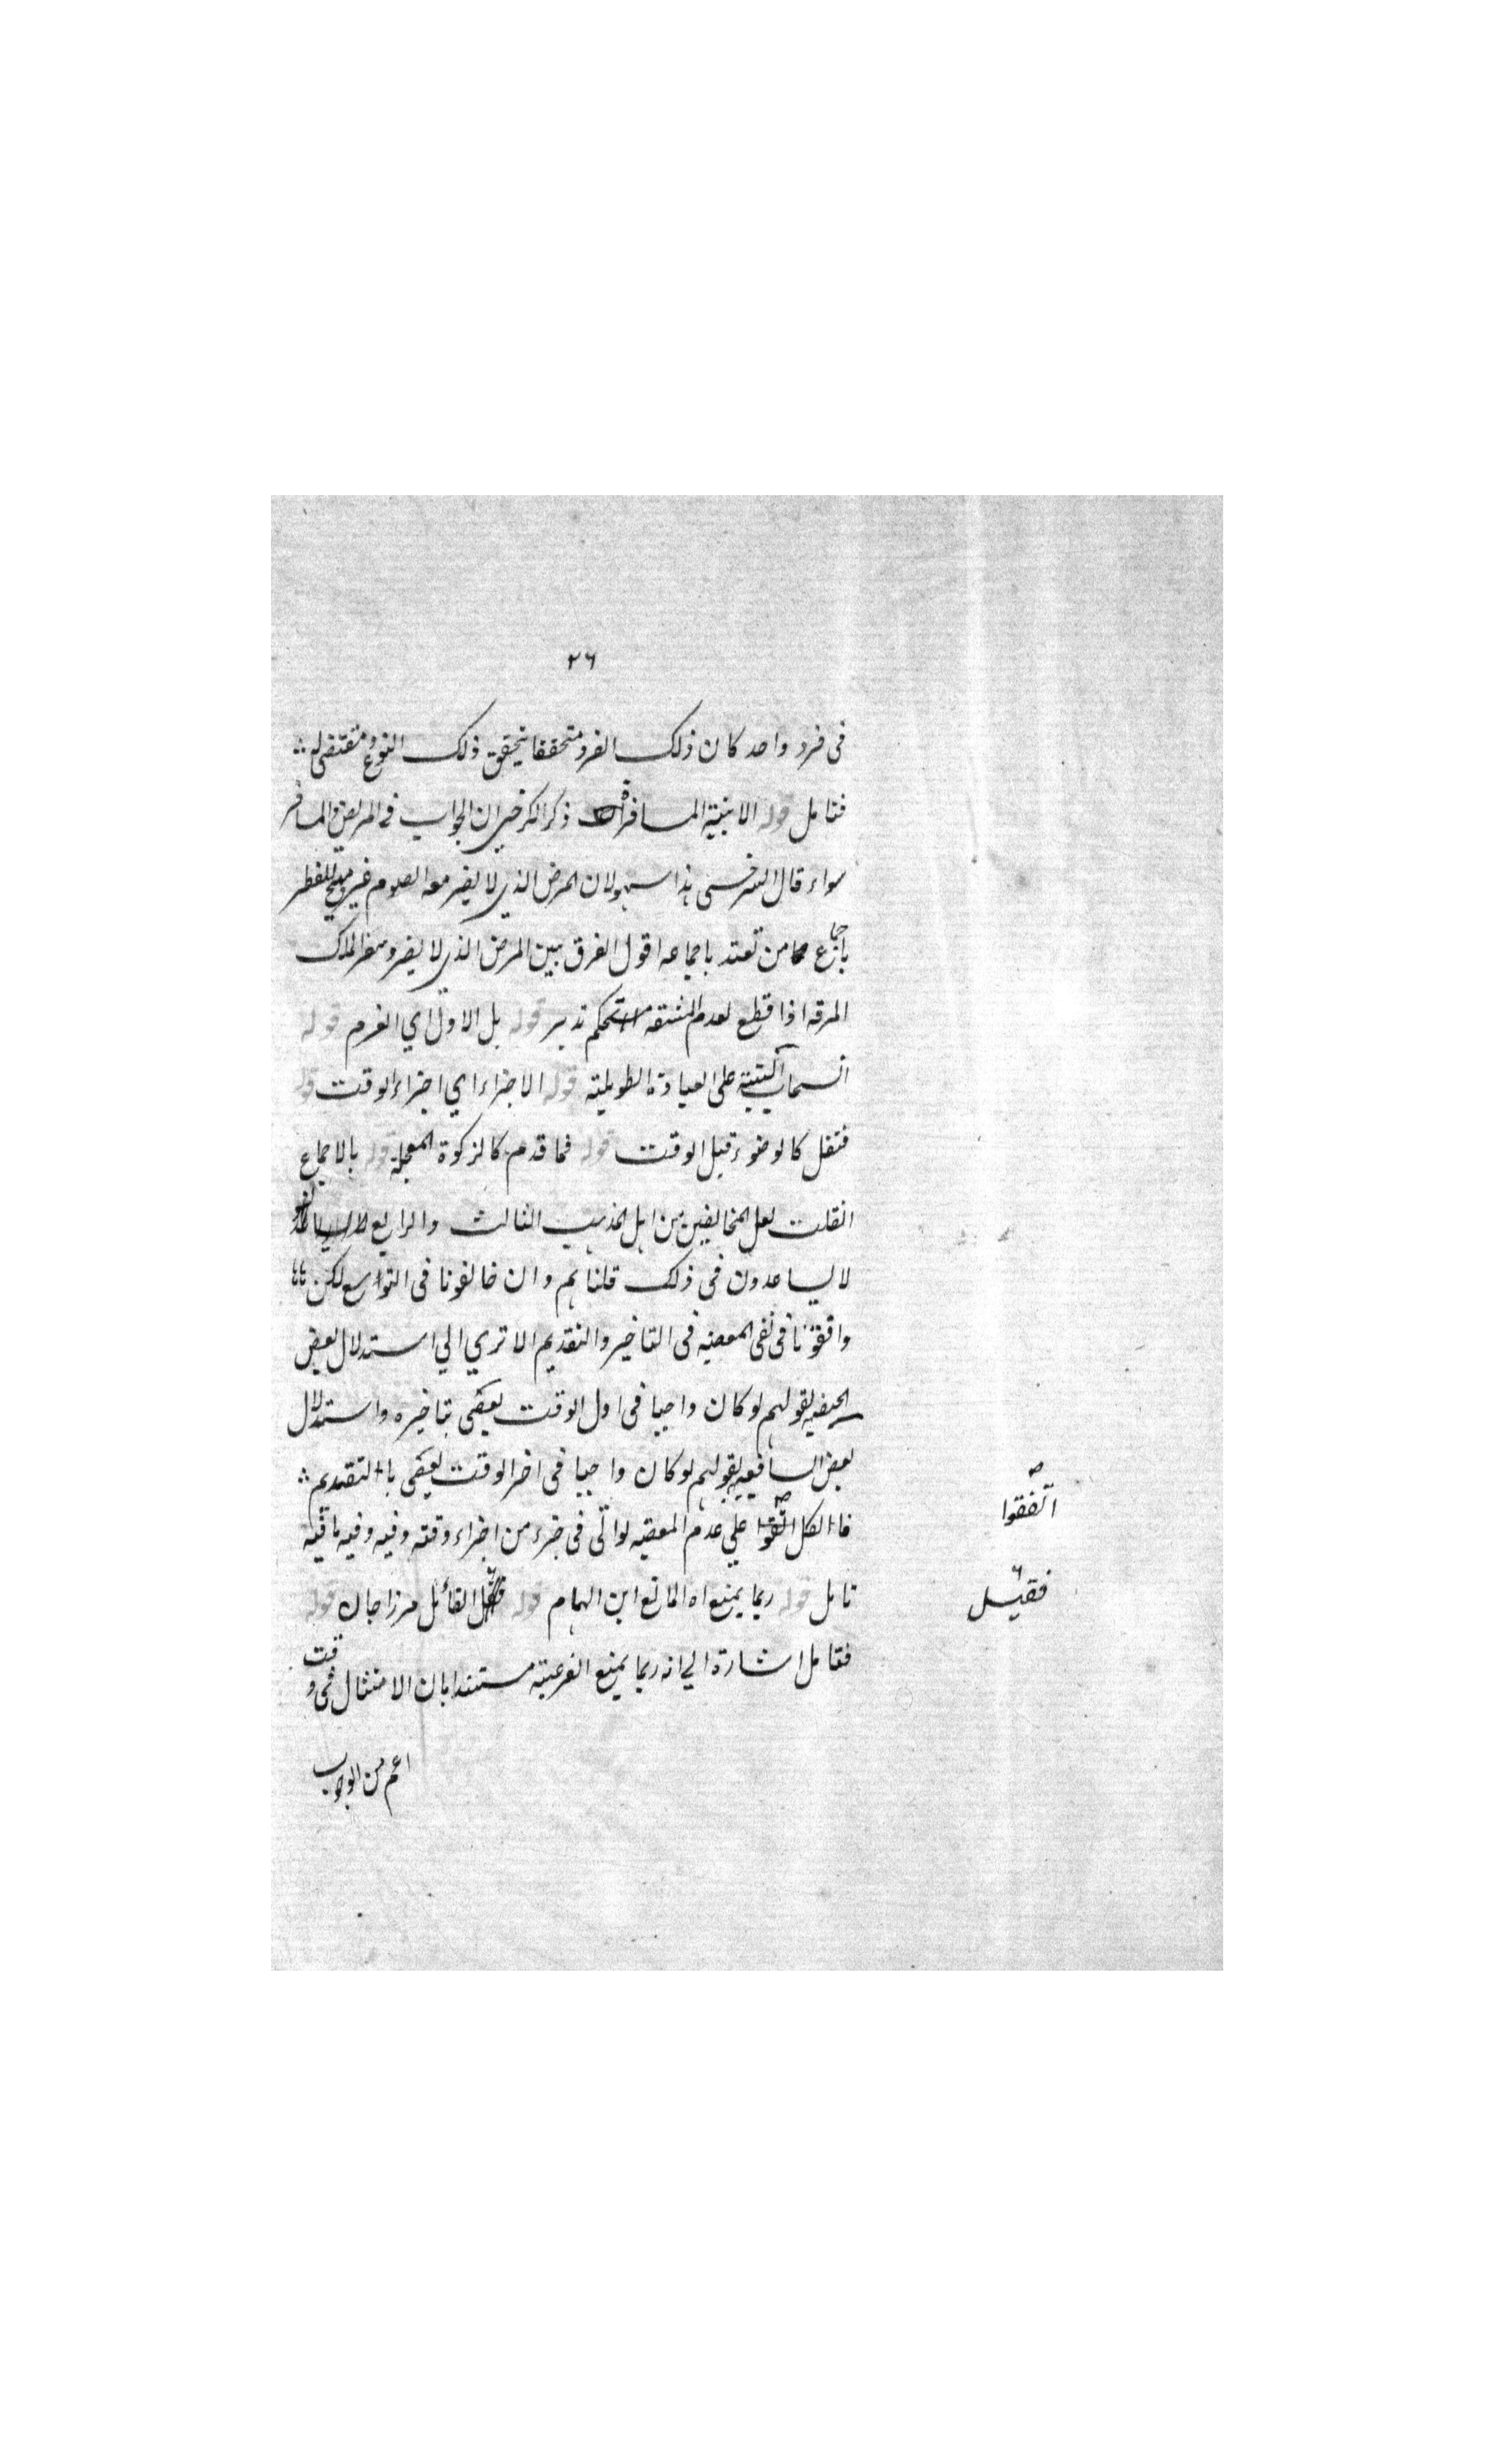 ٢٦
فى فرد واحد كان ذلك الفرد متحققا بتحقق ذلك النوع ومقتضى له
فتامل قوله الا بنية المسافر اه ذكر الكرخى ان الجواب فى المريض والمسافر
سواء قال السرخسى هذا سهو لان المرض الذى لا يضر معه الصوم غير مبيح للفطر
باجماع من تعتد باجماعه اقول الفرق بين المرض الذى لا يضر وسفر الملك
المرفه اذا قطع لعدم المشقة تحكم تدبر قوله بل الاول اي الغرم قوله
انسحاب النية على العبادة الطويلة قوله الاجزاء اي اجزاء الوقت قوله
فنفل كالوضوء قبل الوقت قوله فما قدم كالزكوة المعجلة قوله بالاجماع
انقلت لعل المخالفين من اهل المذهب الثالث والرابع
لا يساعدون فى ذلك قلنا هم وان خالفونا فى التواسع لكن
وافقونا فى نفى المعصيه فى التاخير والتقديم الا تري الي استدلال بعض
الحنفيه بقولهم لو كان واجبا فى اول الوقت لعصى بتاخيره واستدلال
بعض الشافعيه بقولهم لو كان واجبا فى اخر الوقت لعصى بالتقديم
فالكل اتفقوا علي عدم المعصيه لو اتى فى جزء من اجزاء وقته وفيه وفيه ما فيه
تامل قوله ربما يمنع اه المانع ابن الهمام قوله فقيل القائل مرزا جان قوله
فتامل اشارة الي انه ربما يمنع الفرعية مستندا بان الامتثال فى وقت
اعم من الوجوب
اتفقوا
فقيل